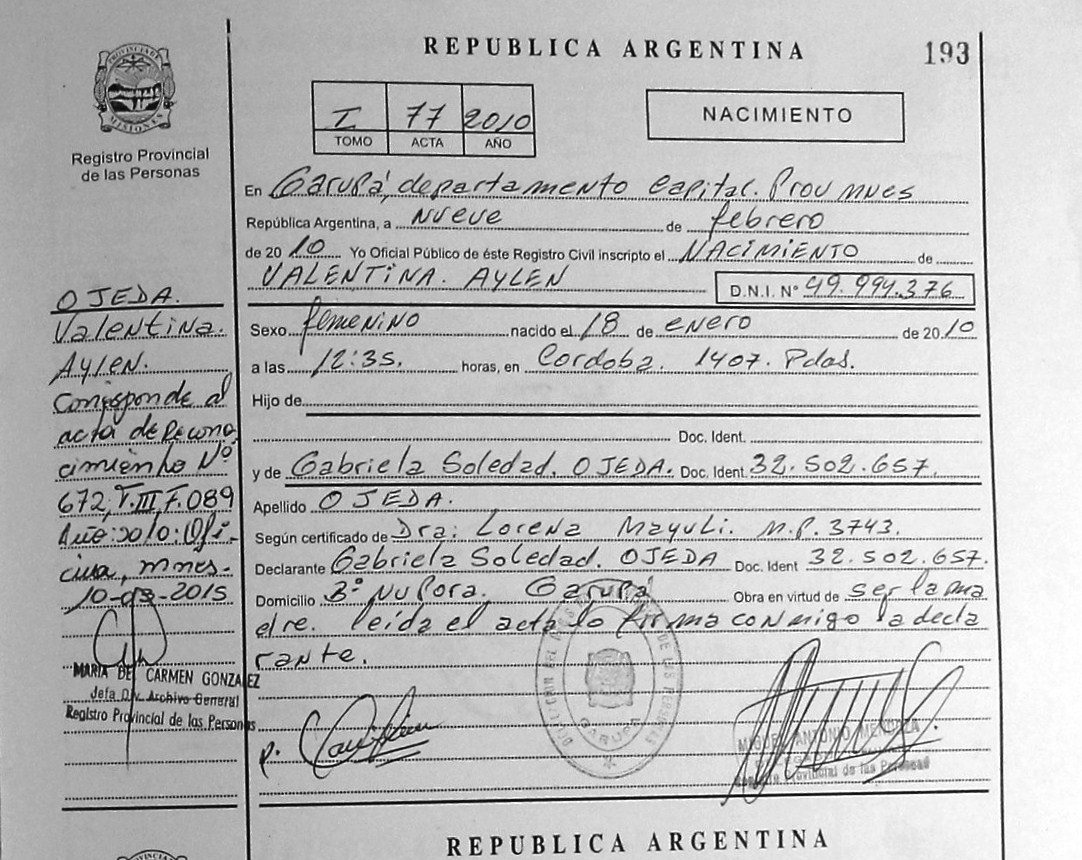 REPUBLICA ARGENTINA
193
PROVINCIA DE
MISIONES
Registro Provincial
de las Personas
I 77 2010
TOMO ACTA AÑO
NACIMIENTO
En Garupá, departamento Capital. Prov mnes
República Argentina, a nueve de febrero
de 2010 Yo Oficial Público de éste Registro Civil inscripto el NACIMIENTO de
VALENTINA. AYLEN
D.N.I. N° 49.994.376
Sexo femenino nacido el 18 de enero de 2010
a las 12:35. horas, en Cordoba. 1407. Pdas.
Hijo de
Doc. Ident.
y de Gabriela Soledad. OJEDA. Doc. Ident. 32.502.657.
Apellido OJEDA.
Según certificado de Dra: Lorena Mayuli. M.P. 3743.
Declarante Gabriela Soledad. OJEDA Doc. Ident 32.502.657.
Domicilio B° Ñu Pora. Garupá Obra en virtud de ser la ma
dre. leída el acta lo firma conmigo la decla
rante.
OJEDA.
Valentina.
Aylen.
Corresponde al
acta de recono
cimiento N°
672, T.III, F.089
Año: 2010: Ofi-
cina, mnes.
10-03-2015
MARIA DEL CARMEN GONZALEZ
Jefa Div. Archivo General
Registro Provincial de las Personas
GARUPA
MIGUEL ANTONIO MENDOZA
Provincial de las Personas
REPUBLICA ARGENTINA